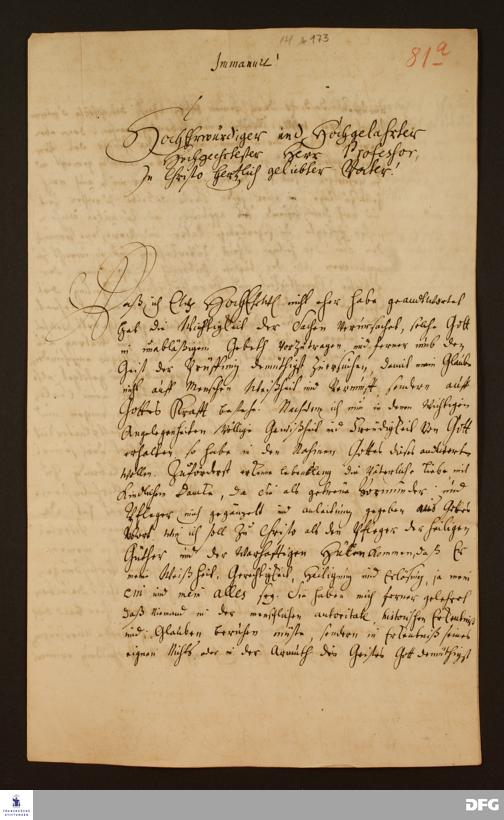 173
81a
Immanuel!
HochEhrwürdiger und Hochgelahrter
Hochgeehrtester Herr Professor,
In Christo hertzlich geliebter Vater.
Daß ich Ew. HochEhrw. nicht eher habe geantwortet
hat die Wichtigkeit der Sachen verursachet, solche Gott
in unabläßigem Gebeth vorzutragen und ferner umb den
Geist der demüthigst zu ersuchen, damit mein Glaube
nicht auff Menschen Weißheit und Vernunfft, sondern auff
Gottes Krafft bestehe. Nachdem ich nun in denen wichtigen
Angelegenheiten völlige Gewißheit und Freudigkeit von Gott
erhalten, so habe in dem Nahmen Gottes dieses antworten
wollen. Zuförderst erkenne lebenslang die Väterliche Liebe mit
kindlichem Dancke, da Sie als getreue Vormünder und
Pfleger mich gegängelt und Anleitung gegeben aus Gottes
Wort, wie ich soll zu Christo als dem Pfleger der heiligen
Güther und der warhafftigen Hütten kommen, daß Er
meine Weißheit, Gerechtigkeit, Heiligung und Erlösung, ja mein
Ein und mein alles sey. Sie haben mich ferner gelehret
daß niemand in der menschlichen autoritaet, historischen Erkentniß
und Glauben beruhen müste, sondern in Erkentniß seines
eigenen Nichts oder in der Armuth des Geistes Gott demüthigst
FRANCKESCHE
STIFTUNGEN
DFG